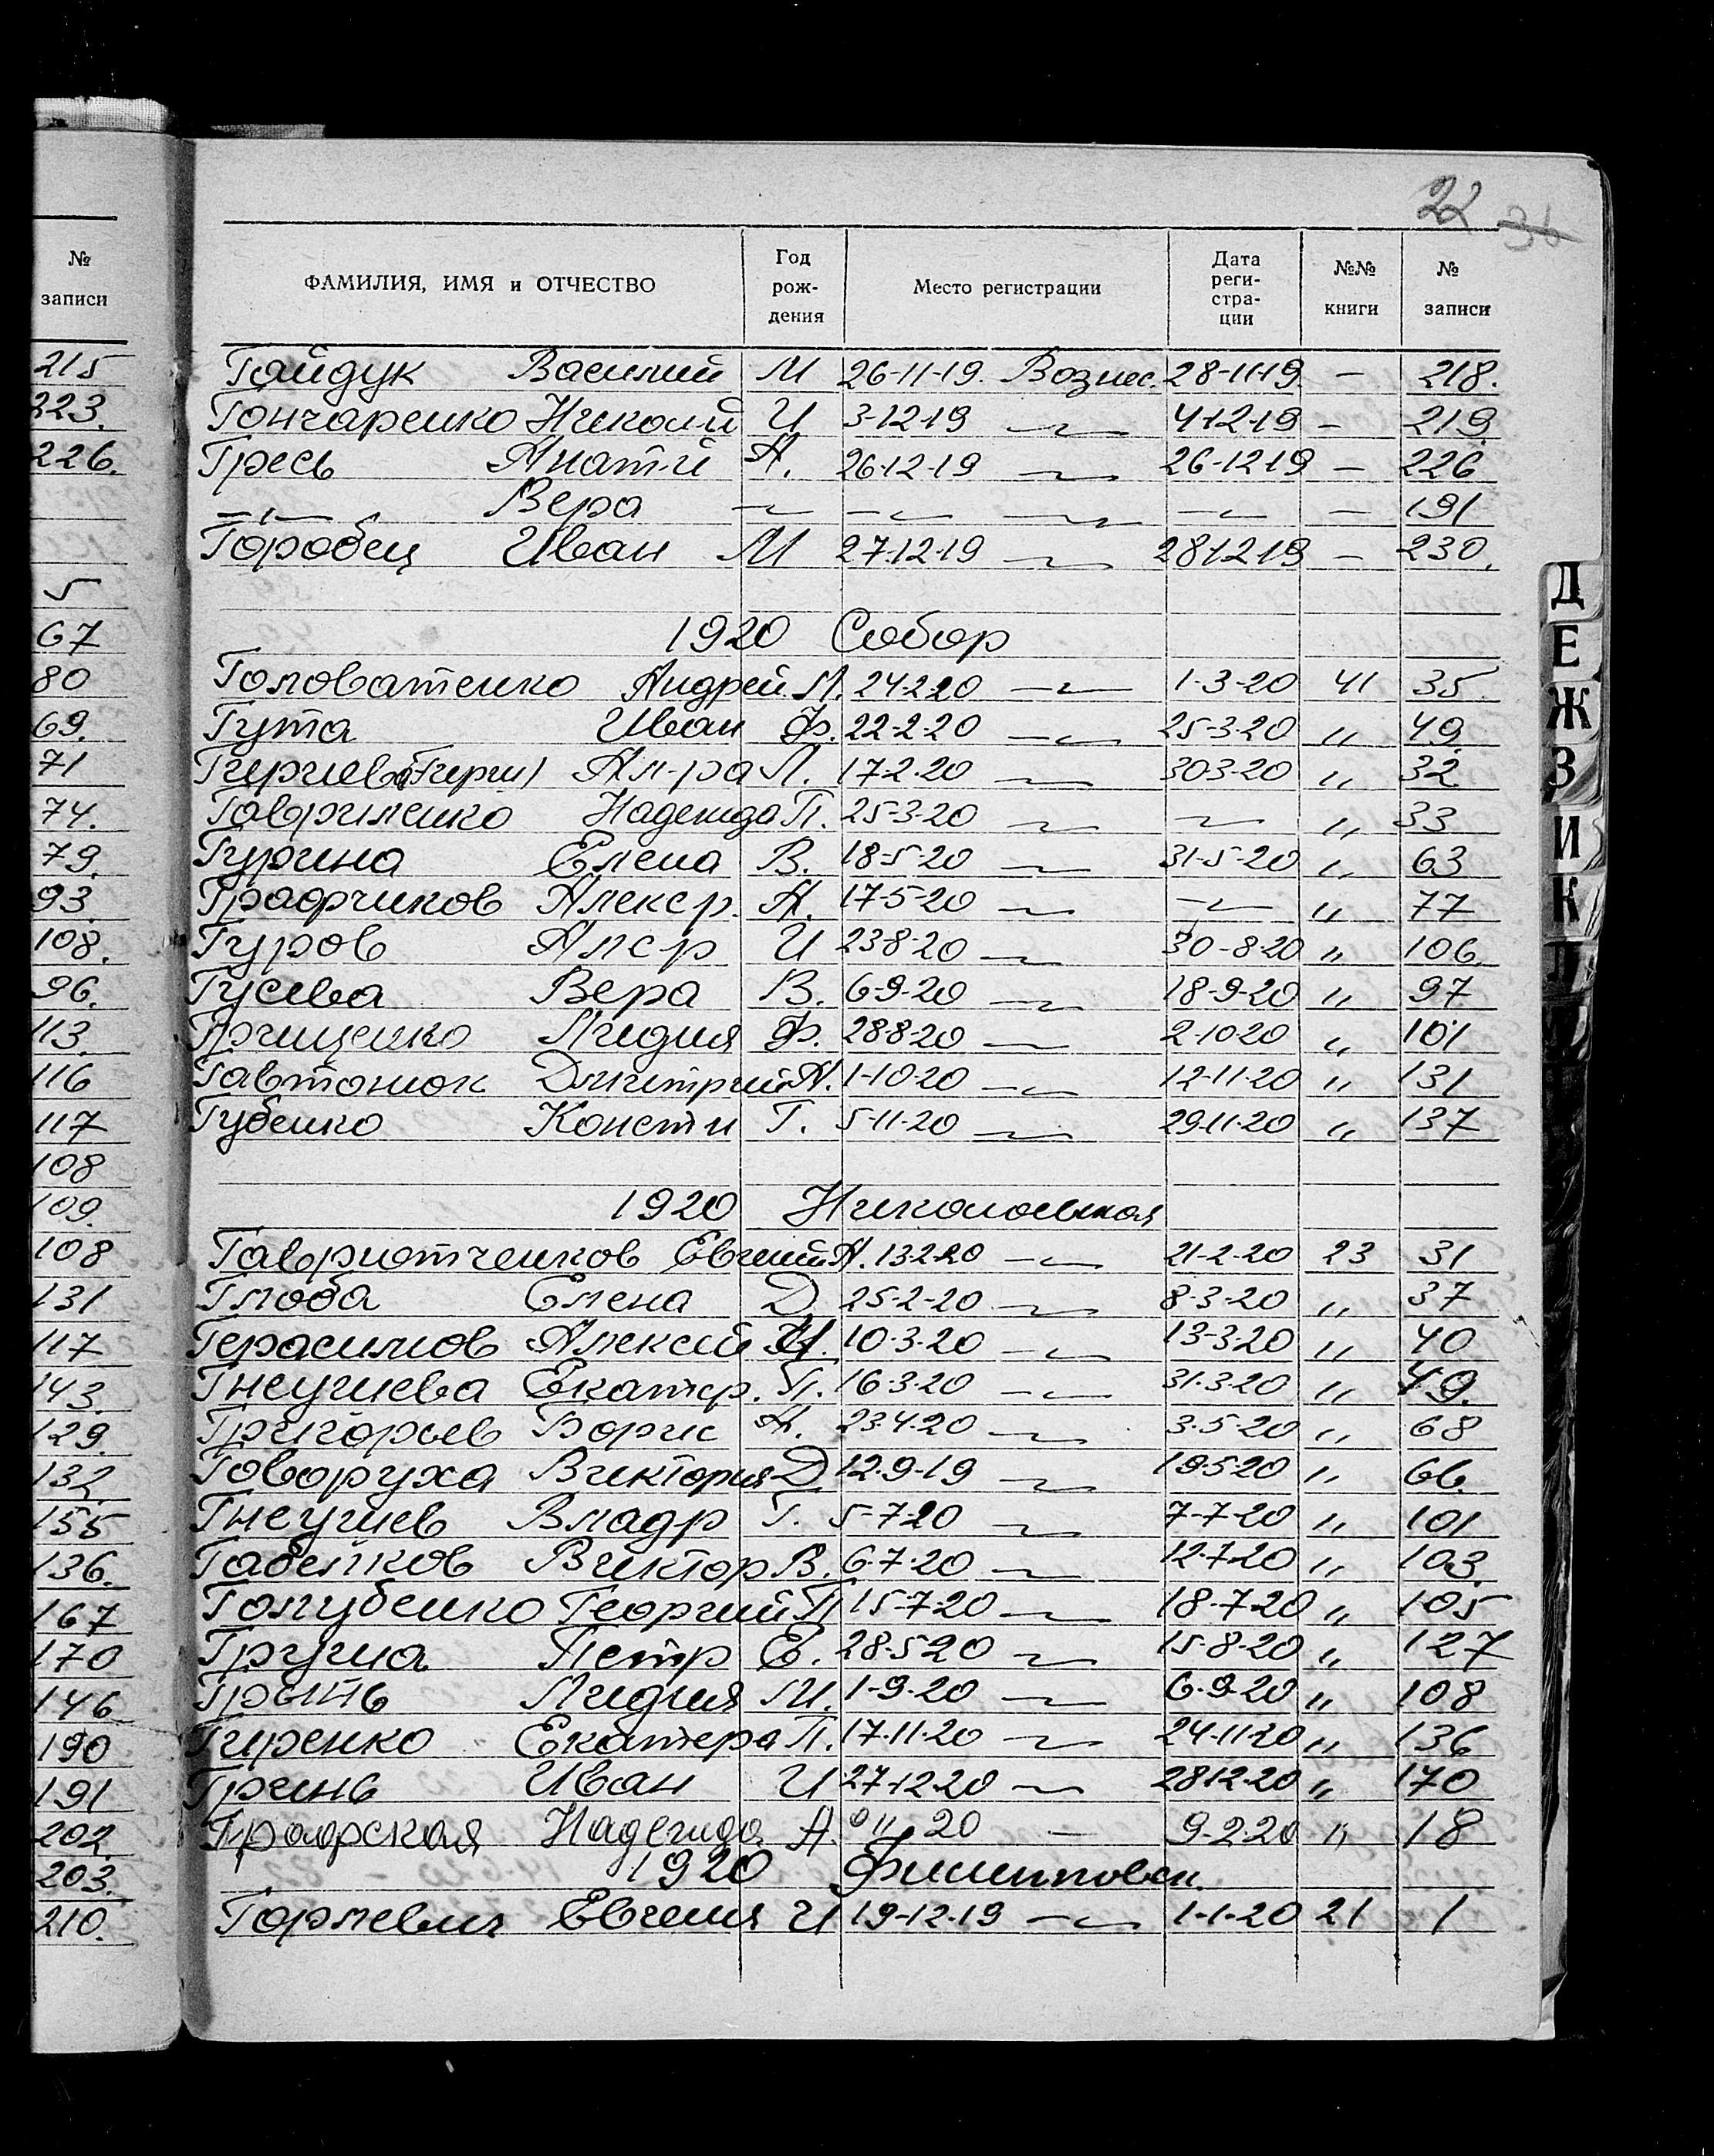 22 36
№ записи
ФАМИЛИЯ, ИМЯ и ОТЧЕСТВО Год рождения Место регистрации Дата регистрации №№ книги № записи
215 Гайдук Василий М 26-11-19. Вознес. 28-11-19 — 218.
223. Гончаренко Никол-й И 3-12-19 —〃— 4-12-19 — 219.
226. Гресь Анат-й А. 26-12-19 —〃— 26-12-19 — 226
—〃— Вера —〃— —〃— —〃— —〃— — 191
Горобец Иван М 27-12-19 —〃— 28-12-19 — 230.
5
67 1920 Собор
80 Головатенко Андрей Л. 24-2-20 —〃— 1-3-20 41 35.
69. Гута Иван Ф. 22-2-20 —〃— 25-3-20 〃 49.
71 Ал-ра Л. 17-2-20 —〃— 30-3-20 〃 32
74. Гавриленко Надежда П. 25-3-20 —〃— —〃— 〃 33
79. Гурина Елена В. 18-5-20 —〃— 31-5-20 〃 63
93. Графчиков Алекс р. А. 17-5-20 —〃— —〃— 〃 77
108. Гуров Алср И 23-8-20 —〃— 30-8-20 〃 106.
96. Гусева Вера В. 6-9-20 —〃— 18-9-20 〃 97
113. Грищенко Лидия Ф. 28-8-20 —〃— 2-10-20 〃 101
116 Гавтонюк Дмитрий А. 1-10-20 —〃— 12-11-20 〃 131
117 Губенко Констн Г. 5-11-20 —〃— 29-11-20 〃 137
108
109. 1920 Николаевская
108 Евгений А. 13-2-20 —〃— 21-2-20 23 31
131 Глоба Елена Д 25-2-20 —〃— 8-3-20 〃 37
117 Герасимов Алексей И. 10-3-20 —〃— 13-3-20 〃 40
143. Гнеушева Екатер. П. 16-3-20 —〃— 31-3-20 〃 49.
129. Григорьев Борис А. 23-4-20 —〃— 3-5-20 〃 68
132. Говоруха Виктория Д 12-9-19 —〃— 19-5-20 〃 66.
155 Гнеушев Владр Г. 5-7-20 —〃— 7-7-20 〃 101
136. Габелков Виктор В. 6-7-20 —〃— 12-7-20 〃 103.
167 Голубенко Георгий П 15-7-20 —〃— 18-7-20 〃 105
170 Петр Е. 28-5-20 —〃— 15-8-20 〃 127
146 Лидия М. 1-9-20 —〃— 6-9-20 〃 108
190 Гиренко Екатера П. 17-11-20 —〃— 24-11-20 〃 136
191 Гринь Иван И 27-12-20 —〃— 28-12-20 〃 170
202. Графская Надежда А. 20 — 9-2-20 〃 18
203. 1920 Филипповск.
210. Горлевич Евгения И 19-12-19 —〃— 1-1-20 21 1
Д
Е
Ж
З
И
К
Л